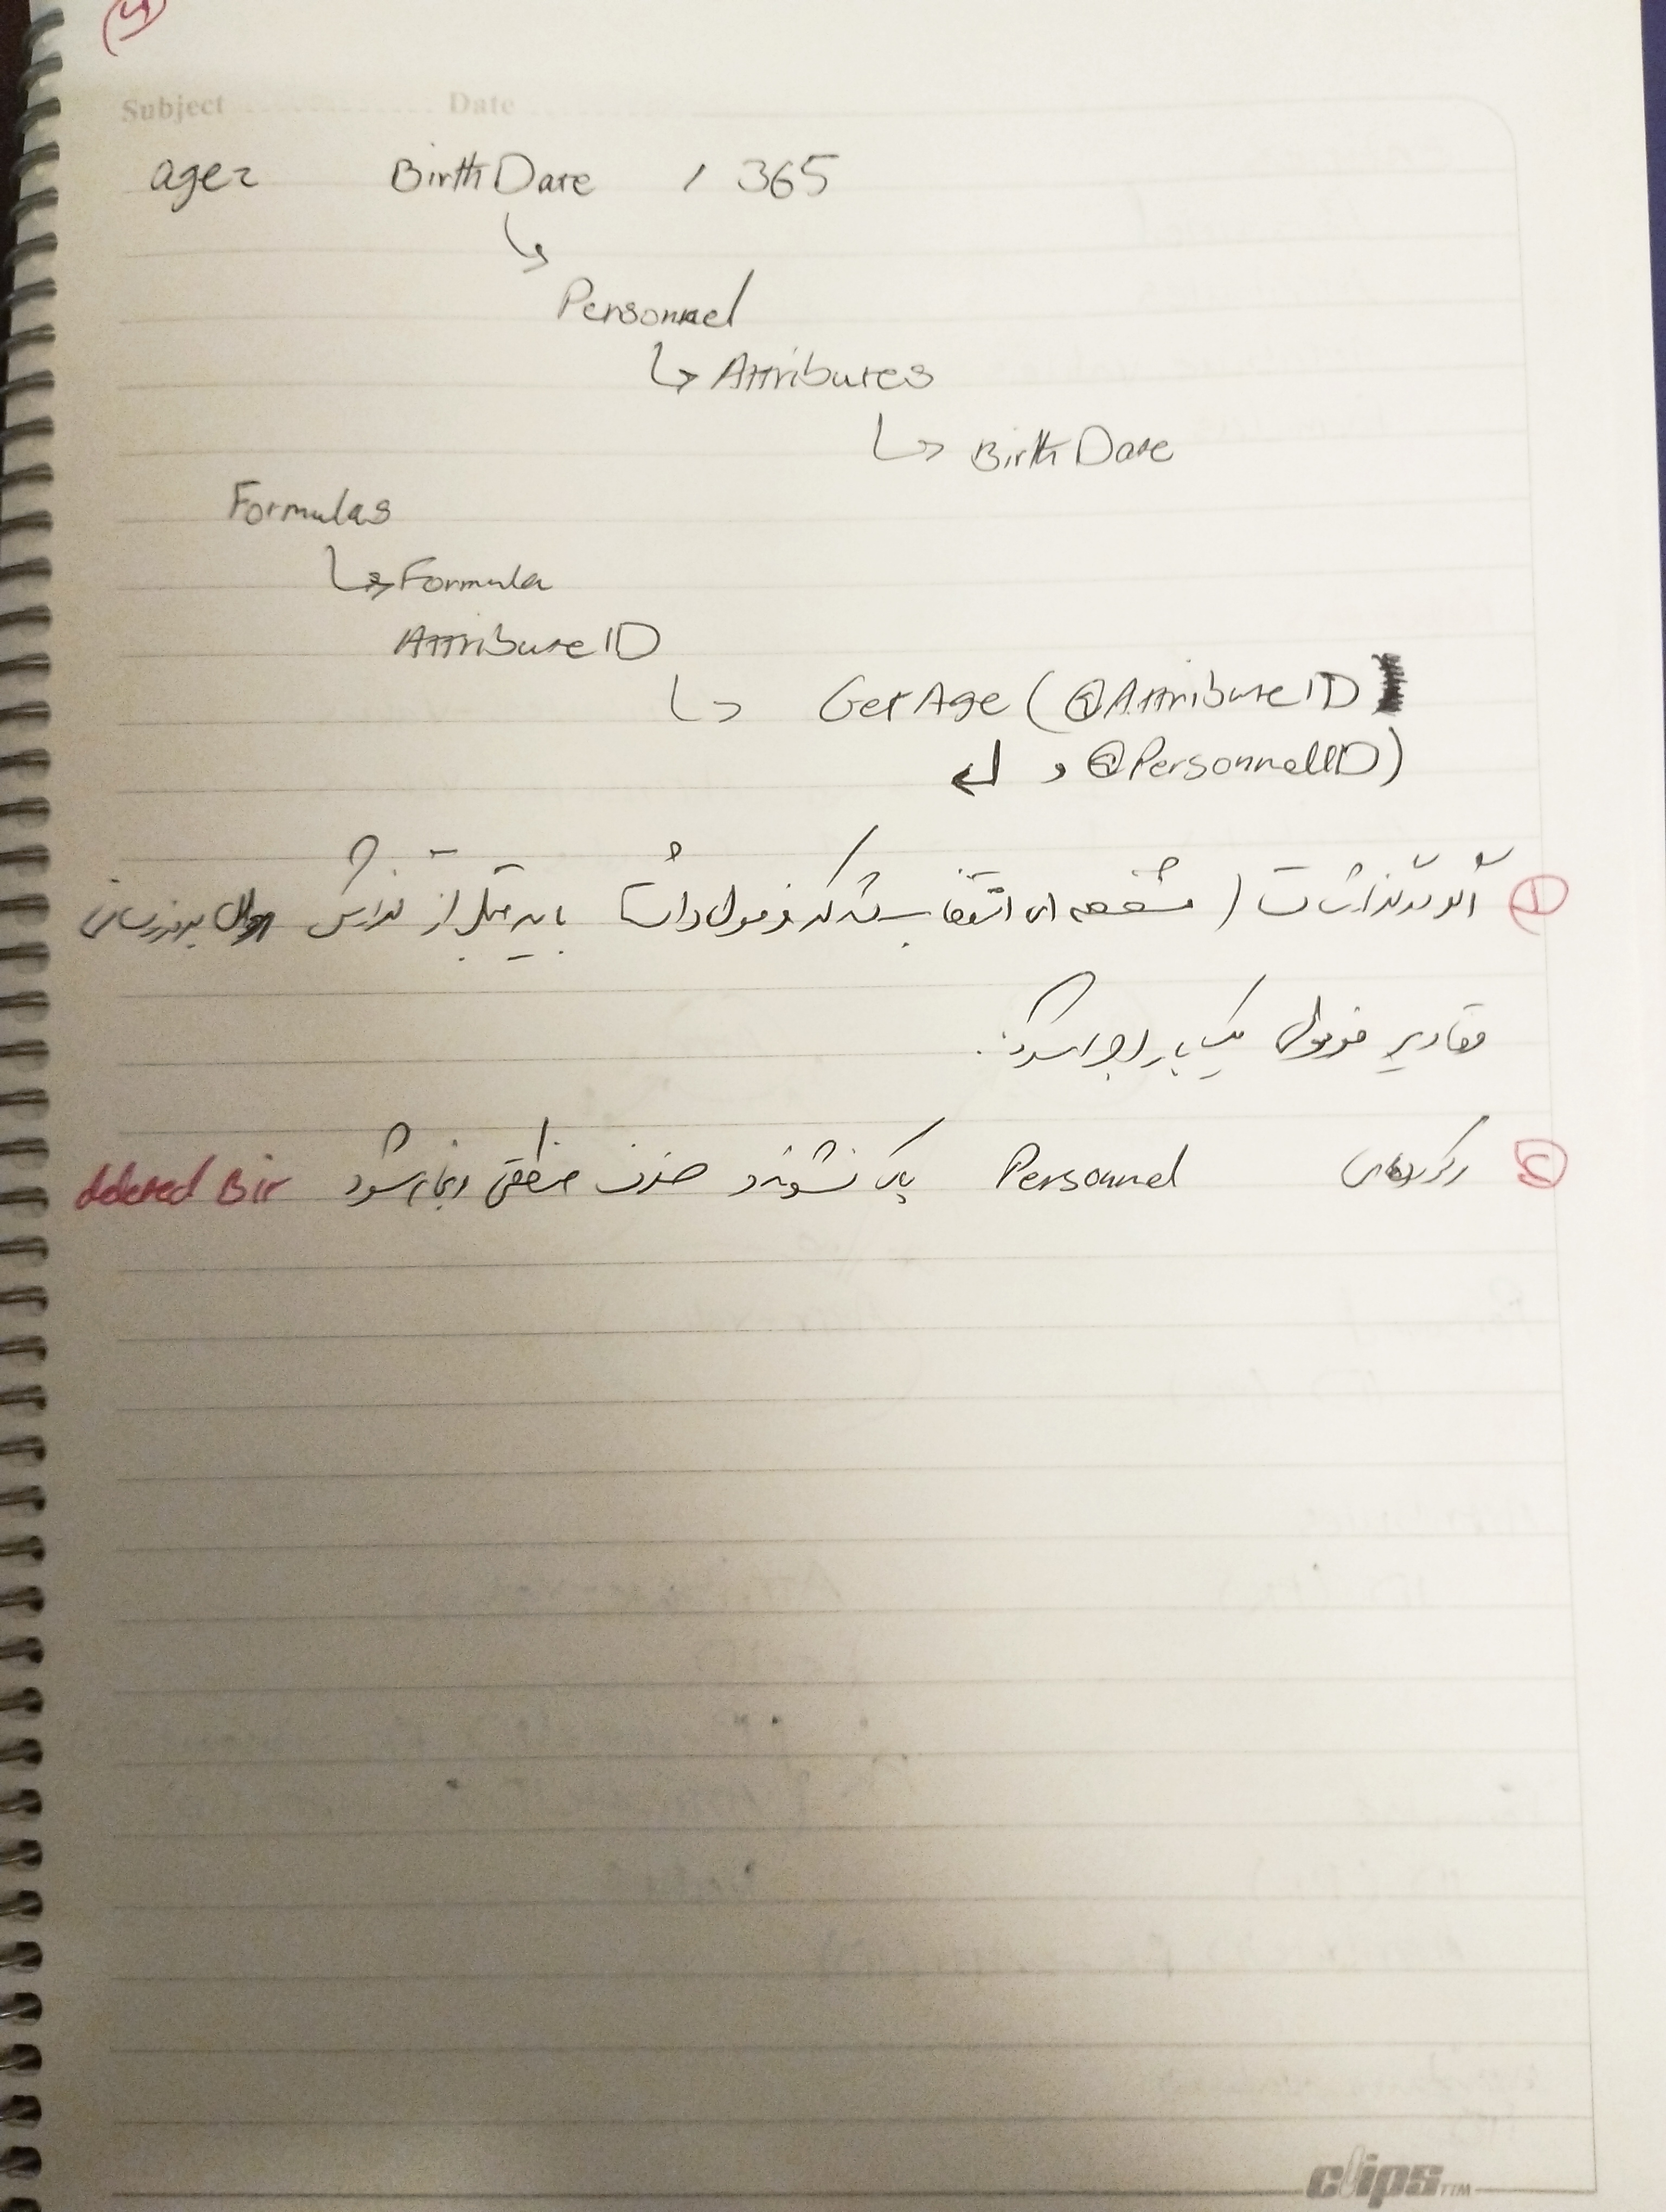 Subject Date
age = BirthDate / 365
Personnel
Attributes
BirthDate
Formulas
Formula
AttributeID
GetAge (@AttributeID
, @PersonnelID)
① اگر در گزارشات ( مشخصه ای انتخاب شد که فرمول داشت) باید قبل از گزارش روال بروزرسانی
مقادیر فرمول یک بار اجرا شود.
② رکوردهای Personnel پاک نشوند و حذف منطقی انجام شود deleted Bit
clips TM